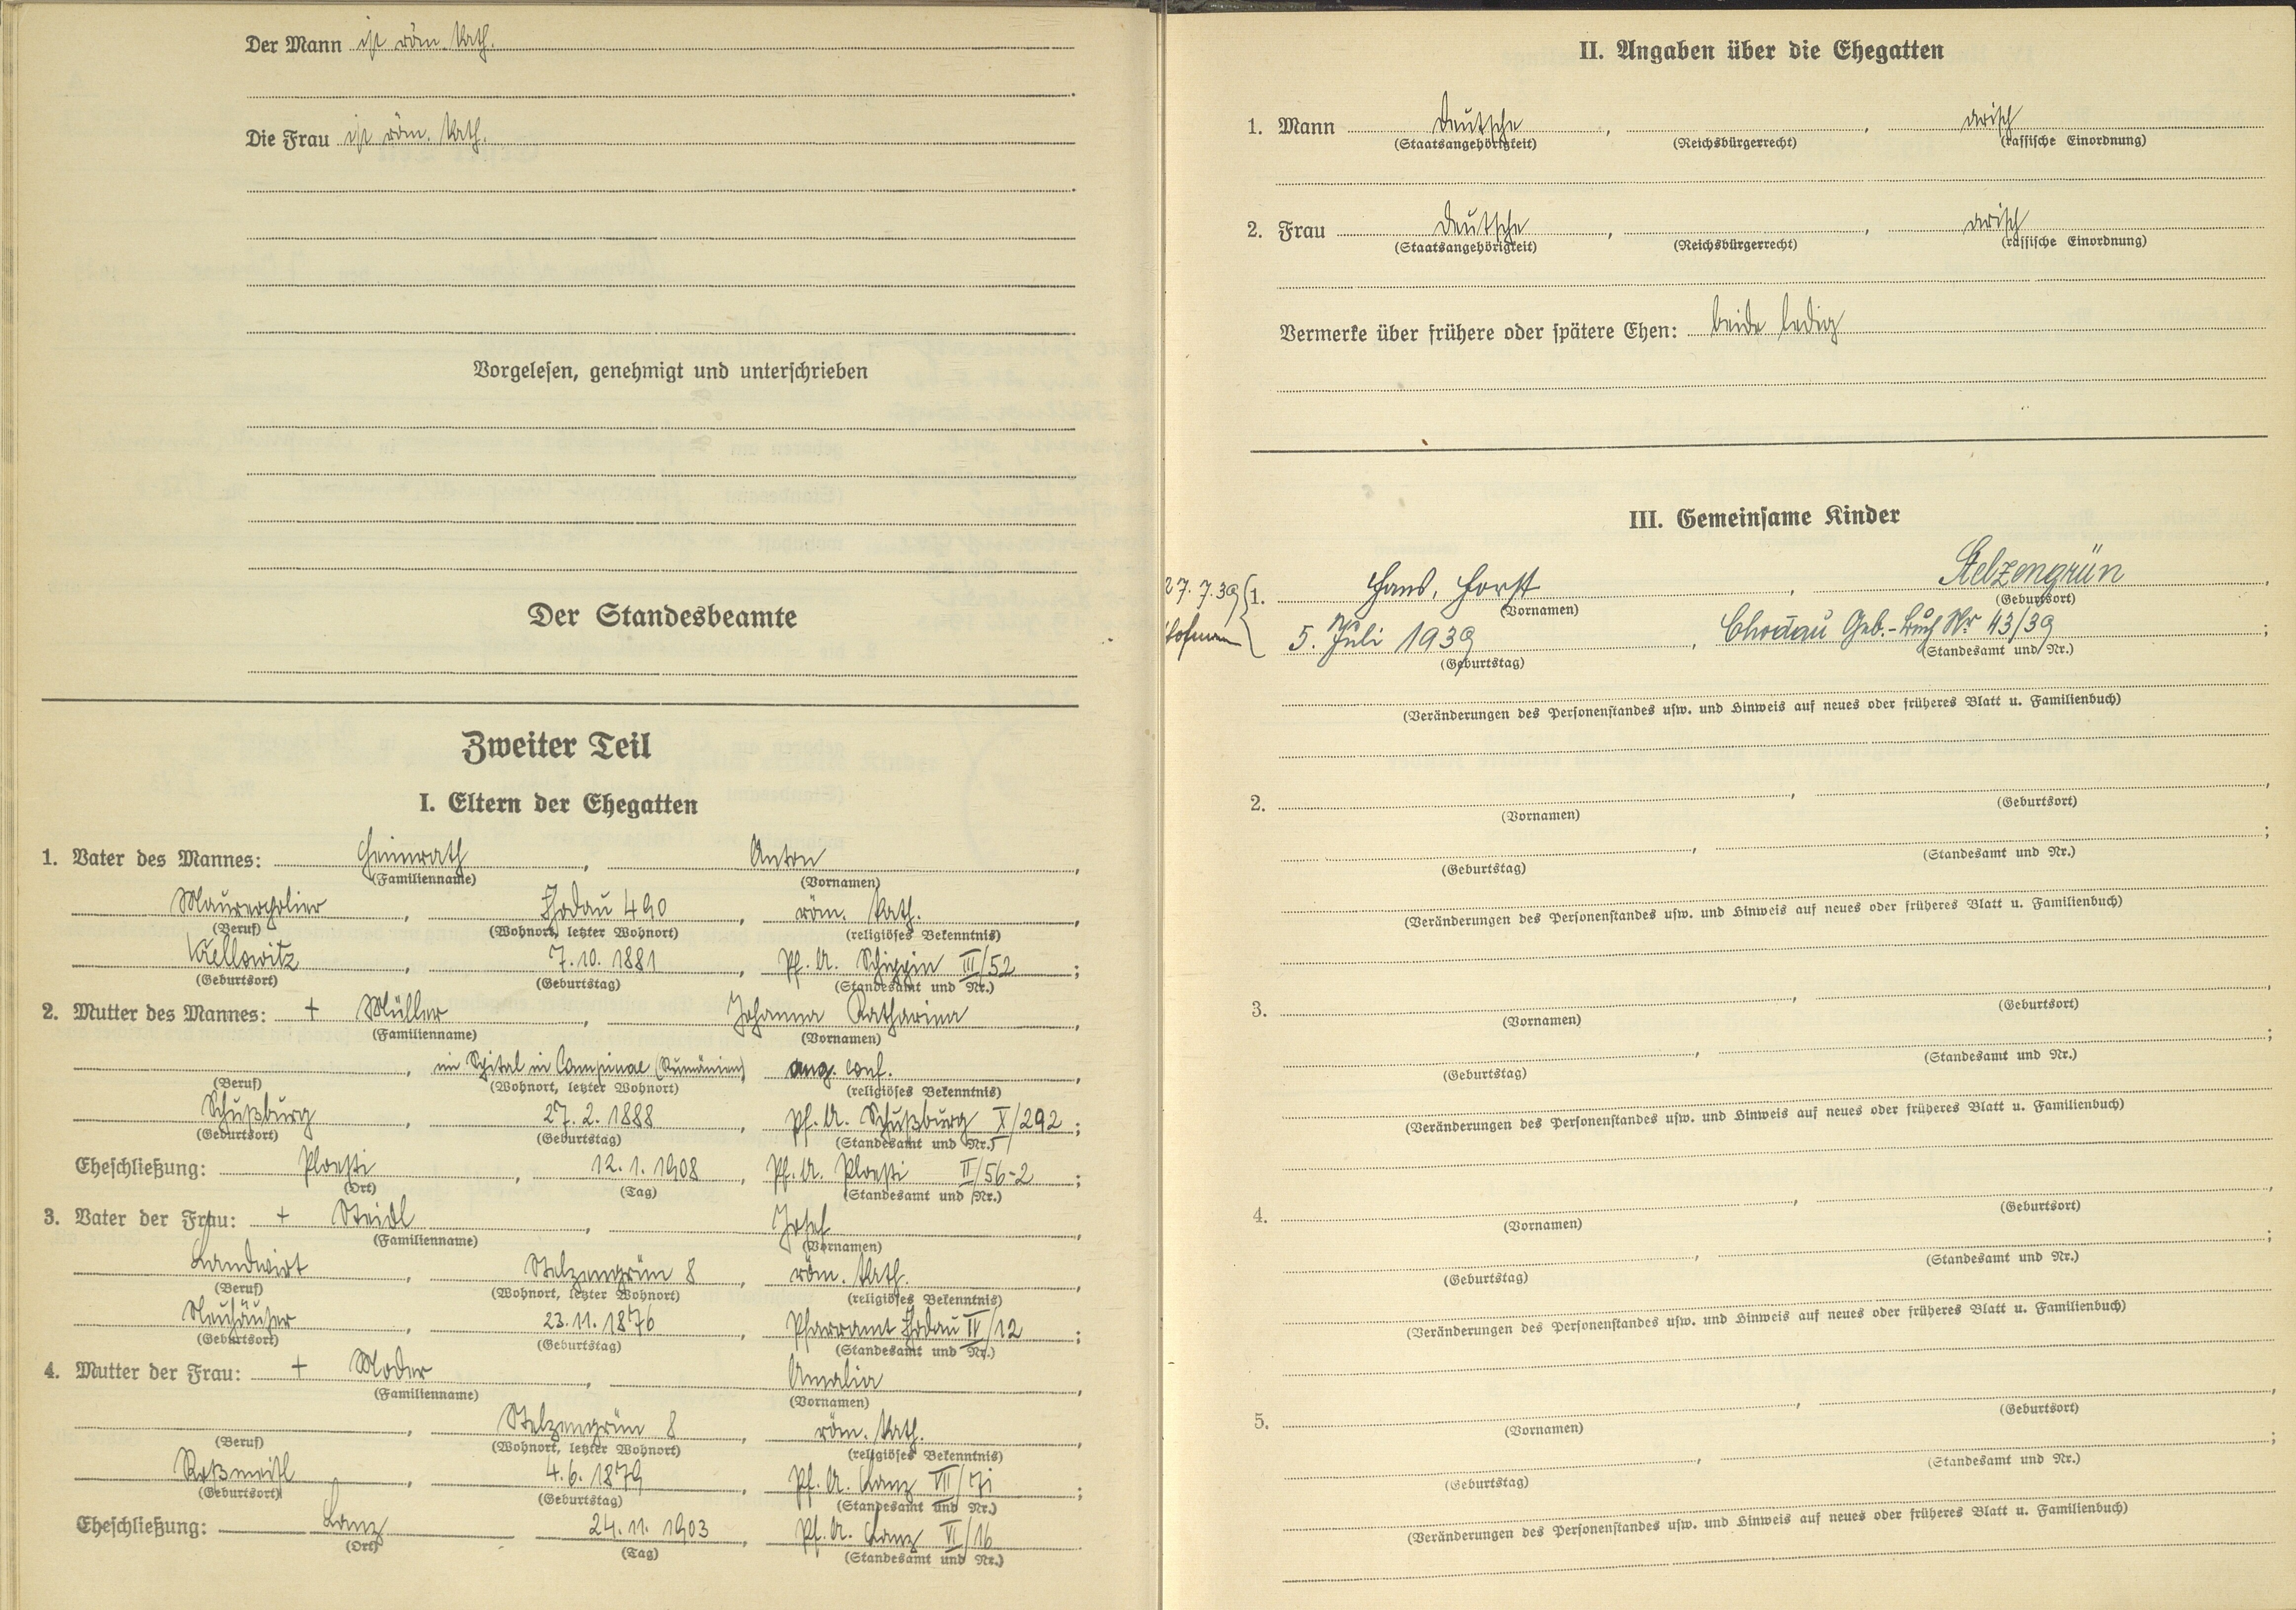 Der Mann ist röm. kath.
Die Frau ist röm. kath.
Vorgelesen, genehmigt und unterschrieben
Der Standesbeamte
Zweiter Teil
I. Eltern der Ehegatten
1. Vater des Mannes: Heinrath, Anton,
(Familienname) (Vornamen)
Maurerpolier, Chodau 490, röm. kath.,
(Beruf) (Wohnort, letzter Wohnort) (religiöses Bekenntnis)
Krellowitz, 7.10.1881, Pf. A. III/52;
(Geburtsort) (Geburtstag) (Standesamt und Nr.)
2. Mutter des Mannes: + Müller, Johanna Katharina,
(Familienname) (Vornamen)
, im Spital in Campina (Rumänien) aug. conf.,
(Beruf) (Wohnort, letzter Wohnort) (religiöses Bekenntnis)
Schußburg, 27.2.1888, Pf. A. Schußburg X/292;
(Geburtsort) (Geburtstag) (Standesamt und Nr.)
Eheschließung: Ploesti, 12.1.1908, Pf. A. Ploesti II/56-2;
(Ort) (Tag) (Standesamt und Nr.)
3. Vater der Frau: + Steidl, Josef,
(Familienname) (Vornamen)
Landwirt, Stelzengrün 8, röm. kath.,
(Beruf) (Wohnort, letzter Wohnort) (religiöses Bekenntnis)
Neuhäuser, 23.11.1876, Pfarramt Chodau IV/12;
(Geburtsort) (Geburtstag) (Standesamt und Nr.)
4. Mutter der Frau: + Moder, Amalia,
(Familienname) (Vornamen)
, Stelzengrün 8, röm. kath.,
(Beruf) (Wohnort, letzter Wohnort) (religiöses Bekenntnis)
Roßmeisl, 4.6.1879, Pf. A. Lanz VII/;
(Geburtsort) (Geburtstag) (Standesamt und Nr.)
Eheschließung: Lanz 24.11.1903, Pf. A. Lanz VI/16
(Ort) (Tag) (Standesamt und Nr.)
II. Angaben über die Ehegatten
1. Mann Deutsche, , arisch
(Staatsangehörigkeit) (Reichsbürgerrecht) (rassische Einordnung)
2. Frau Deutsche, , arisch
(Staatsangehörigkeit) (Reichsbürgerrecht) (rassische Einordnung)
Vermerke über frühere oder spätere Ehen: beide ledig
III. Gemeinsame Kinder
27.7.39 1. Hans, Horst, Stelzengrün,
(Vornamen) (Geburtsort)
5. Juli 1939, Chodau Geb.-Buch Nr 43/39;
(Geburtstag) (Standesamt und Nr.)
(Veränderungen des Personenstandes usw. und Hinweis auf neues oder früheres Blatt u. Familienbuch)
2. , ,
(Vornamen) (Geburtsort)
, ;
(Geburtstag) (Standesamt und Nr.)
(Veränderungen des Personenstandes usw. und Hinweis auf neues oder früheres Blatt u. Familienbuch)
3. , ,
(Vornamen) (Geburtsort)
, ;
(Geburtstag) (Standesamt und Nr.)
(Veränderungen des Personenstandes usw. und Hinweis auf neues oder früheres Blatt u. Familienbuch)
4. , ,
(Vornamen) (Geburtsort)
, ;
(Geburtstag) (Standesamt und Nr.)
(Veränderungen des Personenstandes usw. und Hinweis auf neues oder früheres Blatt u. Familienbuch)
5. , ,
(Vornamen) (Geburtsort)
, ;
(Geburtstag) (Standesamt und Nr.)
(Veränderungen des Personenstandes usw. und Hinweis auf neues oder früheres Blatt u. Familienbuch)